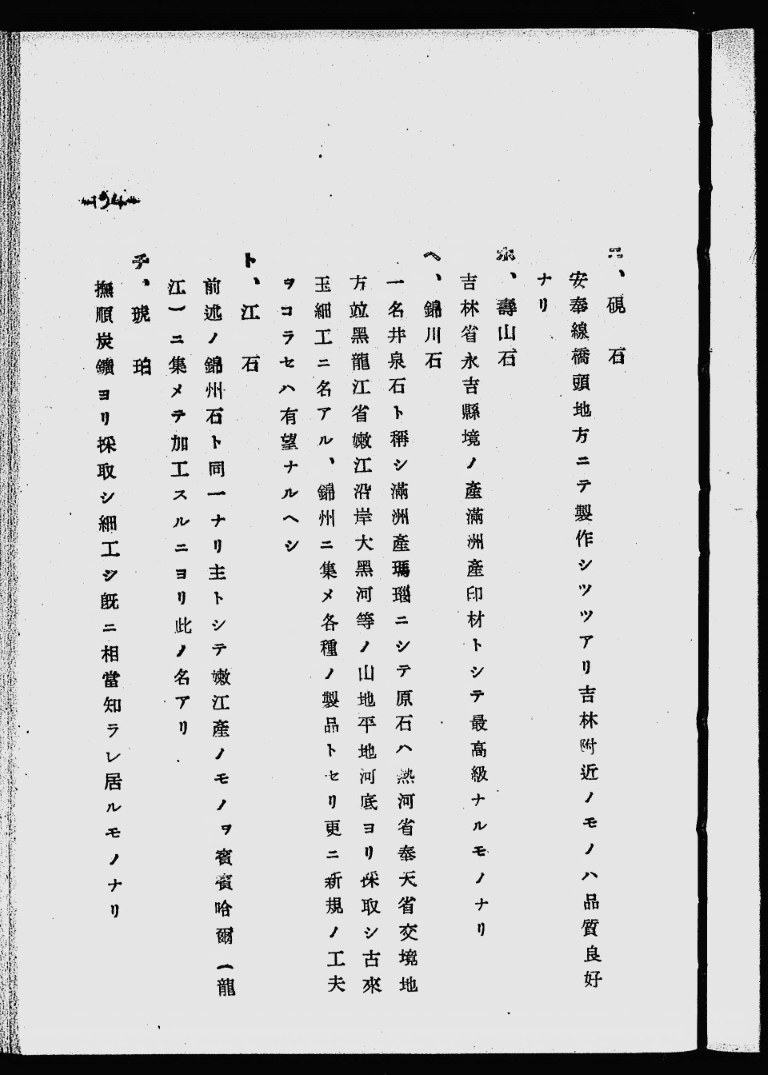 ニ、硯石
安奉線橋頭地方ニテ製作シツツアリ吉林附近ノモノハ品質良好
ナリ
ホ、壽山石
吉林省永吉縣境ノ產滿洲產印材トシテ最高級ナルモノナリ
ヘ、錦川石
一名井泉石ト稱シ滿洲產瑪瑙ニシテ原石ハ熱河省奉天省交境地
方竝黑龍江省嫩江沿岸大黑河等ノ山地平地河底ヨリ採取シ古來
玉細工ニ名アル、錦州ニ集メ各種ノ製品トセリ更ニ新規ノ工夫
ヲコラセハ有望ナルヘシ
ト、江石
前述ノ錦州石ト同一ナリ主トシテ嫩江產ノモノヲ賓賓哈爾(龍
江)ニ集メテ加工スルニヨリ此ノ名アリ
チ、琥珀
撫順炭鑛ヨリ採取シ細工シ既ニ相當知ラレ居ルモノナリ
194